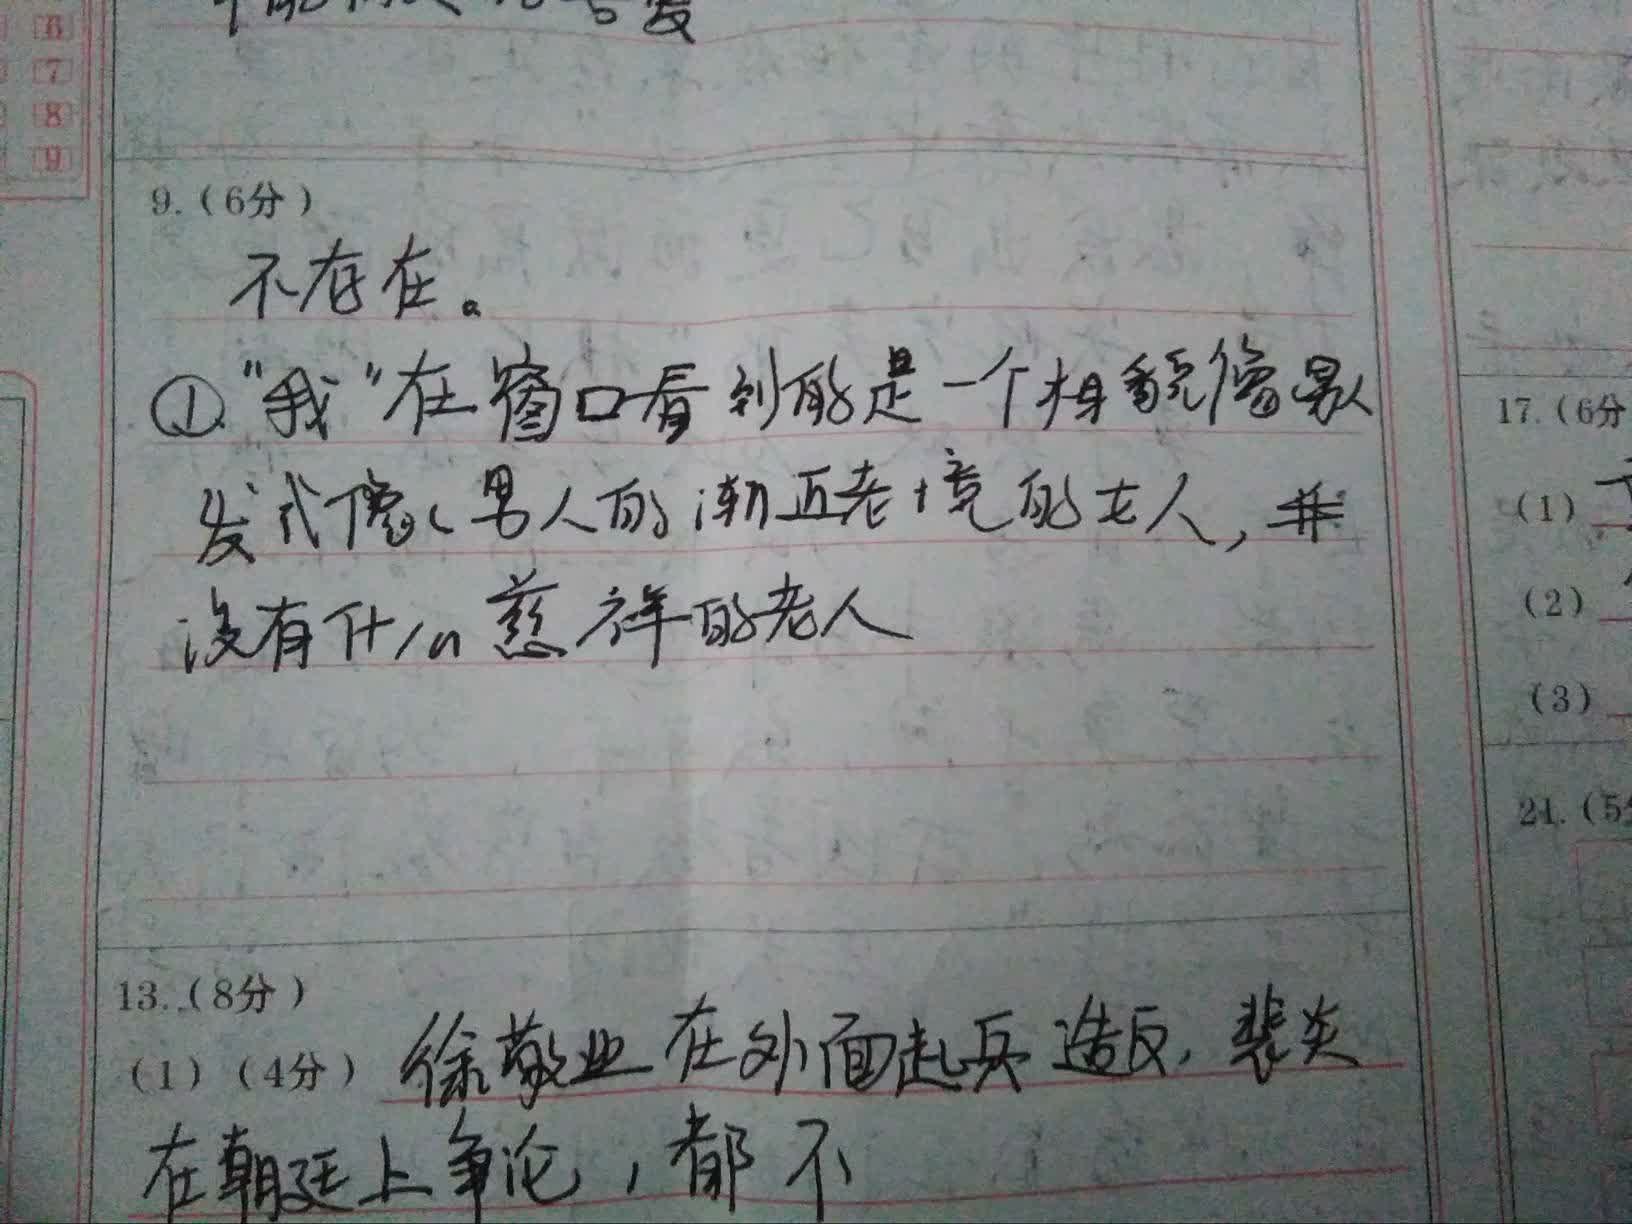 6
7
8
9
9.(6分)
不存在。
①."我"在窗口看到的是一个相貌像男人
发式像男人的渐近老境的女人,
没有什么慈祥的老人
13.(8分)
(1)(4分)徐敬业在外面起兵造反,裴炎
在朝廷上争论,都不
17.(6分
(1)
(2)
(3)
21.(5分